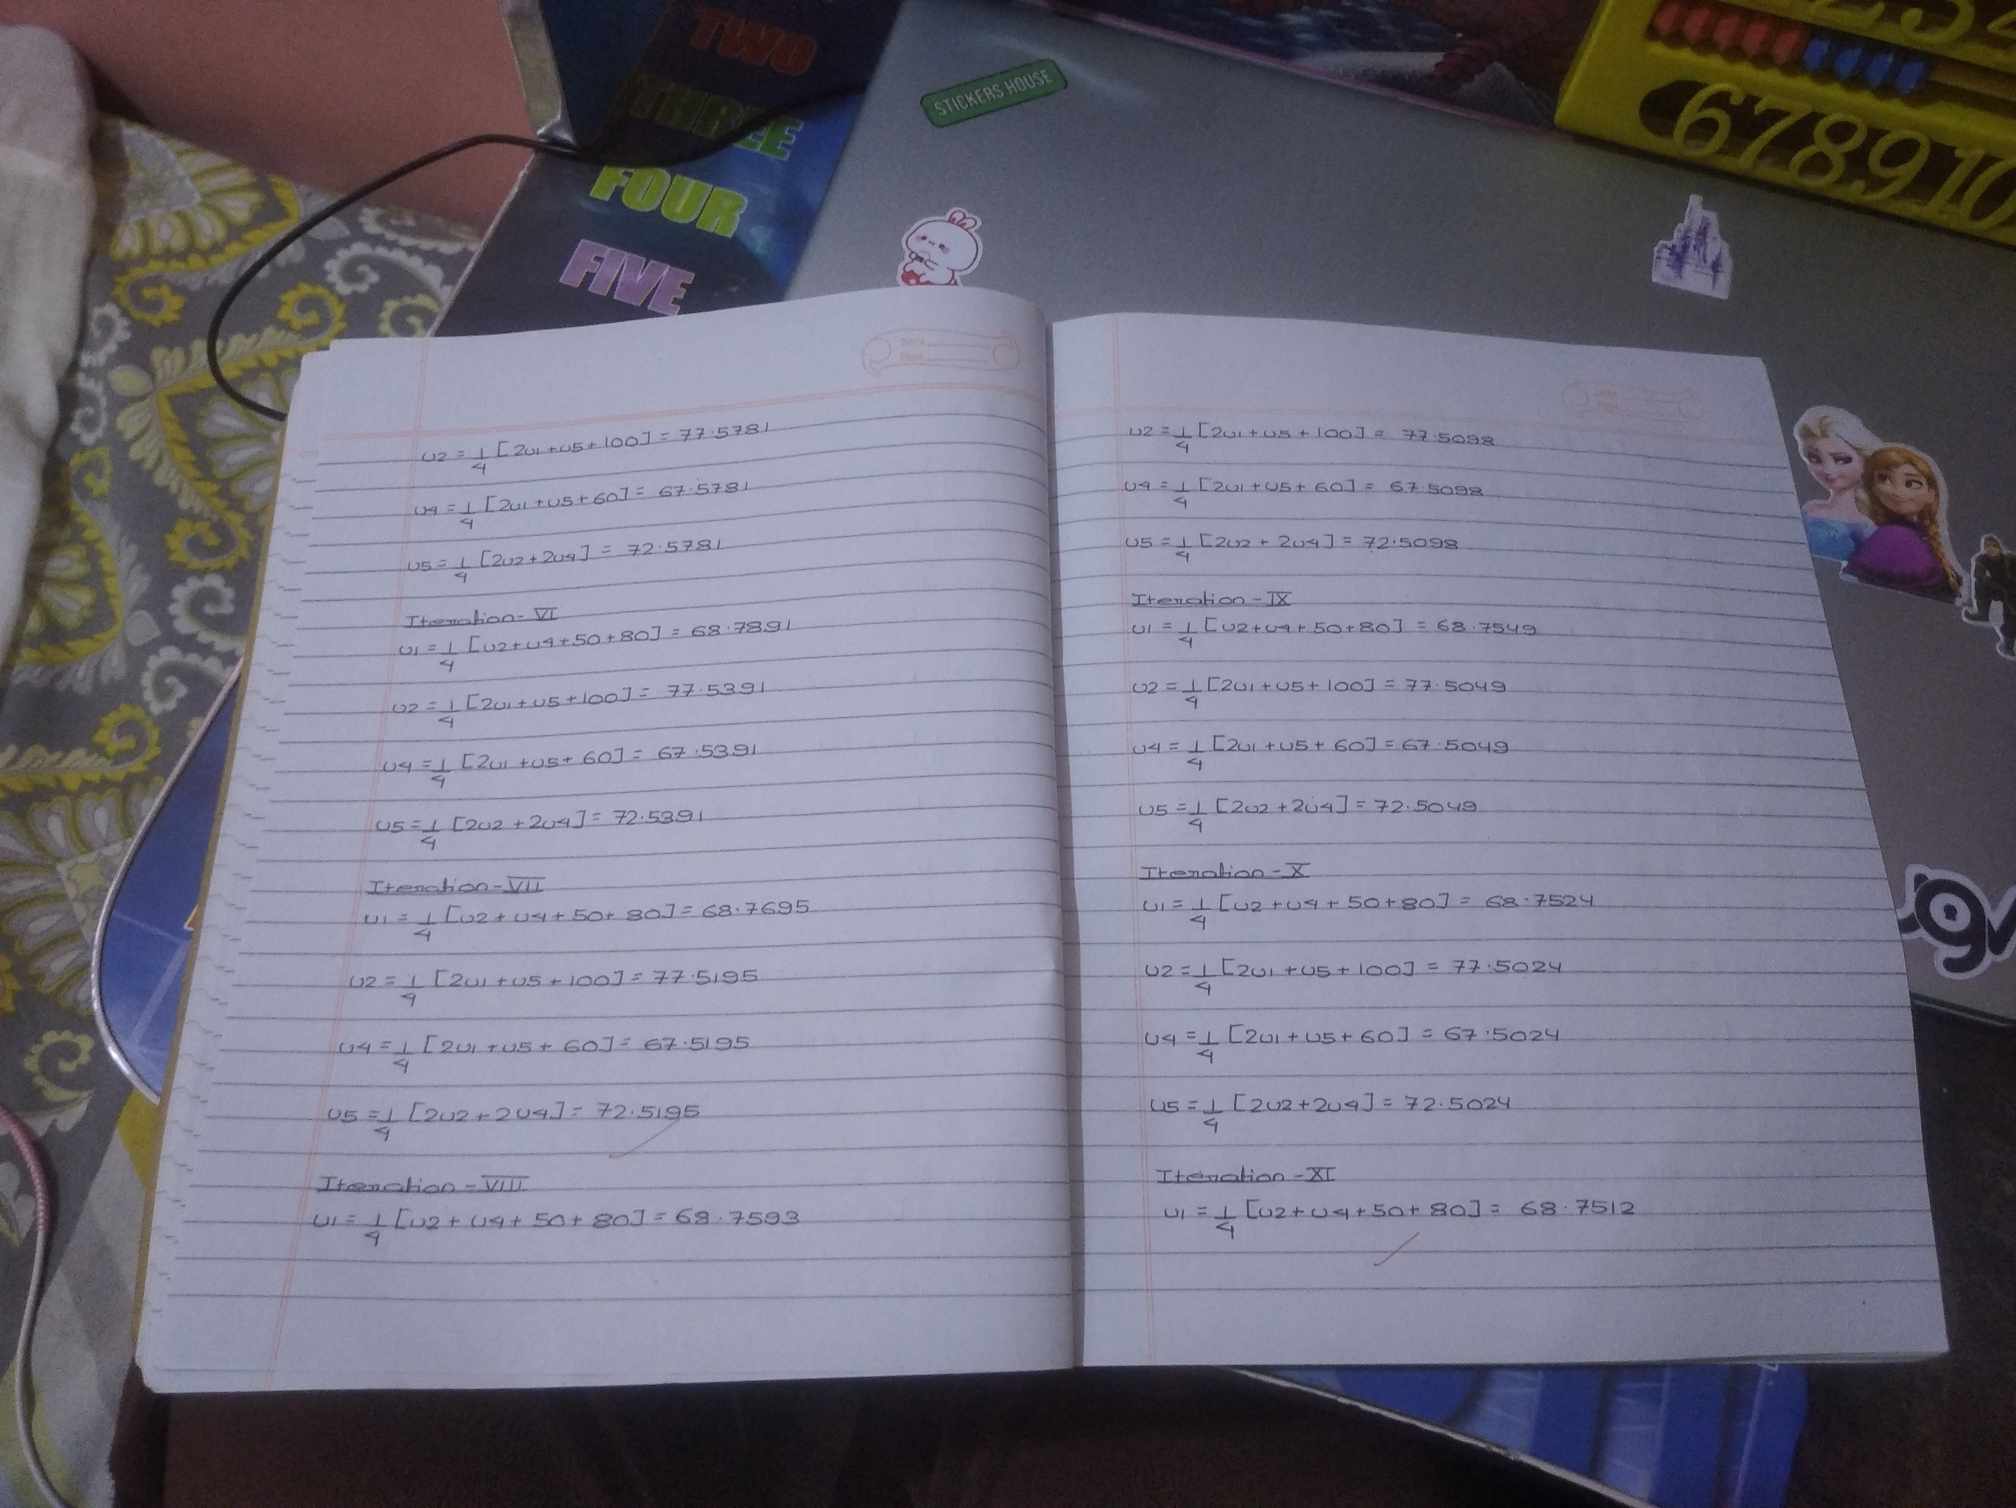 TWO
THREE
FOUR
FIVE
STICKERS HOUSE
678910
u2 = 1/4 [2u1+u5+100] = 77.5781
u4 = 1/4 [2u1+u5+60] = 67.5781
u5 = 1/4 [2u2+2u4] = 72.5781
Iteration-VI
u1 = 1/4 [u2+u4+50+80] = 68.7891
u2 = 1/4 [2u1+u5+100] = 77.5391
u4 = 1/4 [2u1+u5+60] = 67.5391
u5 = 1/4 [2u2+2u4] = 72.5391
Iteration-VII
u1 = 1/4 [u2+u4+50+80] = 68.7695
u2 = 1/4 [2u1+u5+100] = 77.5195
u4 = 1/4 [2u1+u5+60] = 67.5195
u5 = 1/4 [2u2+2u4] = 72.5195
Iteration-VIII
u1 = 1/4 [u2+u4+50+80] = 68.7593
u2 = 1/4 [2u1+u5+100] = 77.5098
u4 = 1/4 [2u1+u5+60] = 67.5098
u5 = 1/4 [2u2+2u4] = 72.5098
Iteration-IX
u1 = 1/4 [u2+u4+50+80] = 68.7549
u2 = 1/4 [2u1+u5+100] = 77.5049
u4 = 1/4 [2u1+u5+60] = 67.5049
u5 = 1/4 [2u2+2u4] = 72.5049
Iteration-X
u1 = 1/4 [u2+u4+50+80] = 68.7524
u2 = 1/4 [2u1+u5+100] = 77.5024
u4 = 1/4 [2u1+u5+60] = 67.5024
u5 = 1/4 [2u2+2u4] = 72.5024
Iteration-XI
u1 = 1/4 [u2+u4+50+80] = 68.7512